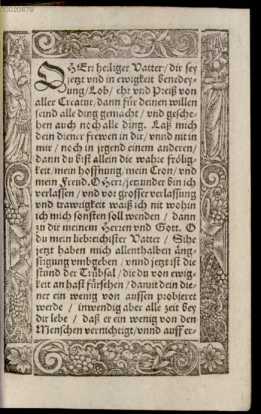 O HErr heiliger Vatter/ dir sey
jetzt vnd in ewigkeit benedey-
ung/ Lob/ ehr vnd Preiß von
aller Creatur/ dann für deinen willen
seind alle ding gemacht/ vnd gesche-
hen auch noch alle ding. Laß mich
dein diener frewen in dir/ vnnd nit in
mir/ noch in jrgend einem anderen/
dann du bist allein die wahre frölig-
keit/ mein hoffnung/ mein Cron/ vnd
mein Freud. O Herr/ jetzunder bin ich
verlassen/ vnd vor grosser verlassung
vnd trawrigkeit waiß ich nit wohin
ich mich sonsten soll wenden/ dann
zu dir meinem Herren vnd Gott. O
du mein liebreichister Vatter/ Sihe
jetzt haben mich allenthalben äng-
stigung vmbgeben/ vnnd jetzt ist die
stund der Trübsal/ die du von ewig-
keit an hast fürsehen/ damit dein die-
ner ein wenig von aussen probieret
werde/ inwendig aber alle zeit bey
dir lebe/ daß er ein wenig von den
Menschen vernichtigt/ vnnd auff er-